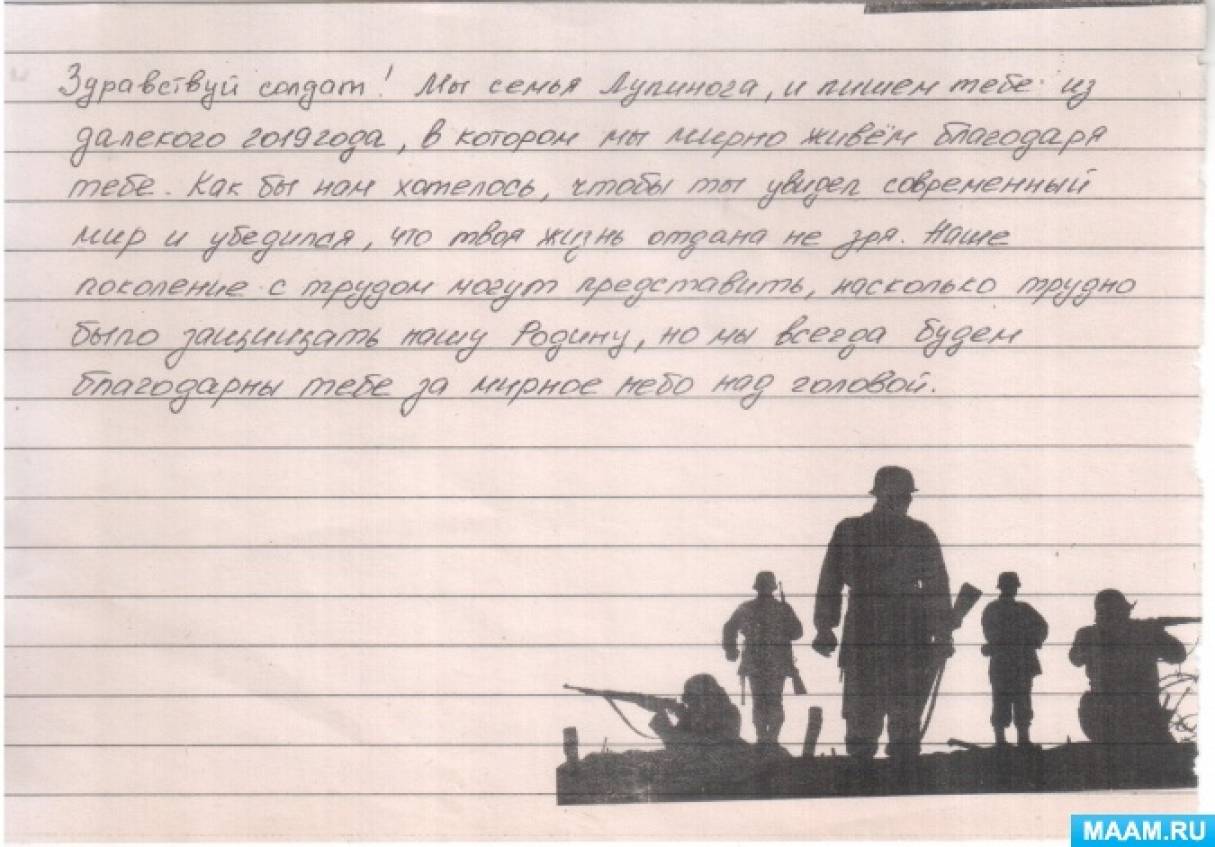 Здравствуй солдат! Мы семья Лупинога, и пишем тебе из
далекого 2019 года, в котором мы мирно живём благодаря
тебе. Как бы нам хотелось, чтобы ты увидел современный
мир и убедился, что твоя жизнь отдана не зря. Наше
поколение с трудом могут представить, насколько трудно
было защищать нашу Родину, но мы всегда будем
благодарны тебе за мирное небо над головой.
MAAM.RU